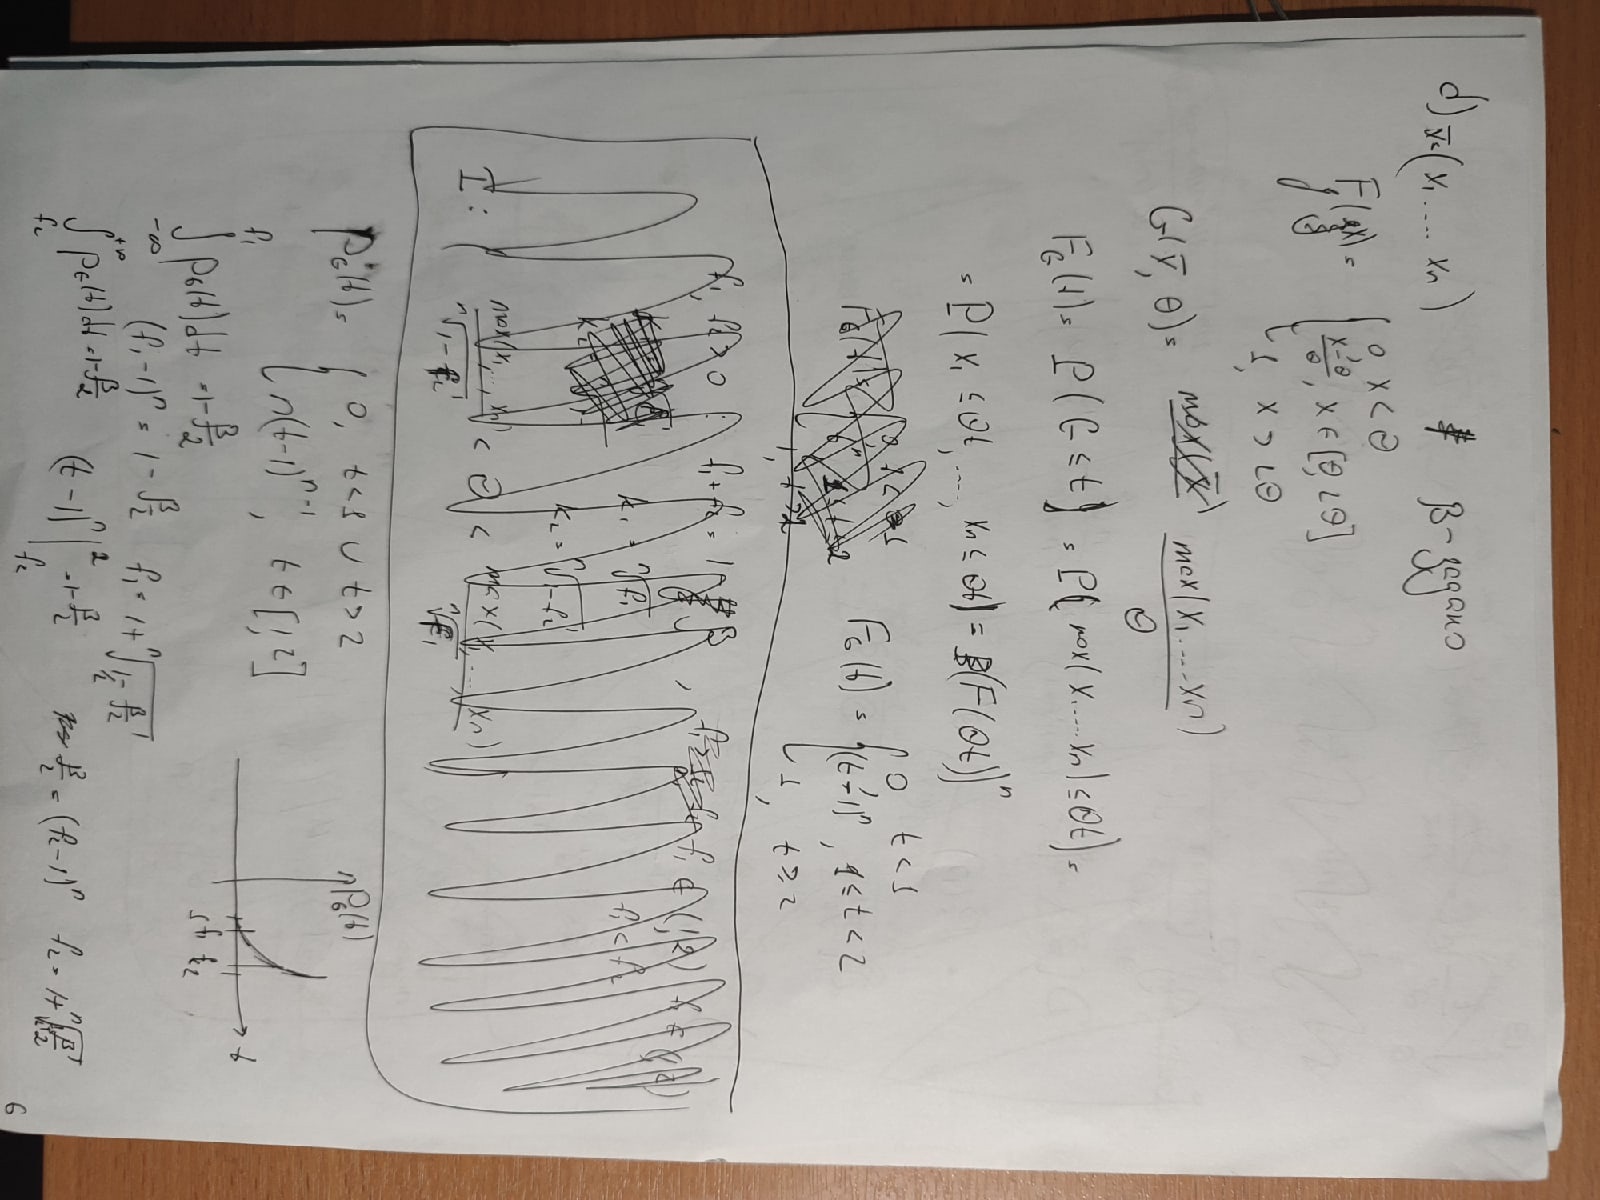 d) x̄ = (x₁ .... xₙ) β - задано
F(x) = { 0, x < θ
(x-θ)/θ, x ∈ [θ, 2θ]
1, x > 2θ
G(x̄, θ) = max(x₁....xₙ)/θ
F_G(t) = P(G ≤ t) = P(max(x₁....xₙ) ≤ θt) =
= P(x₁ ≤ θt, ...., xₙ ≤ θt) = (F(θt))ⁿ
F_G(t) = { 0, t < 1
(t-1)ⁿ, 1 ≤ t < 2
1, t ≥ 2
f₁, f₂ > 0 : f₁ + f₂ = 1 - β, f₁ ∈ (1, 2) f₂ ∈ (1, 2)
f₁ < f₂
k₁ = ⁿ√f₁
k₂ = ⁿ√(1-f₂)
I: max(x₁,...,xₙ)/ⁿ√(1-f₂) < θ < max(x₁,...,xₙ)/ⁿ√f₁
p_G(t) = { 0, t < 1 ∪ t > 2
n(t-1)ⁿ⁻¹, t ∈ [1, 2]
p_G(t)
t
1 f₁ f₂ 2
∫_{-∞}^{f₁} p_G(t)dt = 1 - β/2
(f₁-1)ⁿ = 1 - β/2 f₁ = 1 + ⁿ√(1/2 - β/2)
∫_{f₂}^{+∞} p_G(t)dt = 1 - β/2 (t-1)ⁿ|_{f₂}^{2} = 1 - β/2 β/2 = (f₂-1)ⁿ f₂ = 1 + ⁿ√(β/2)
6